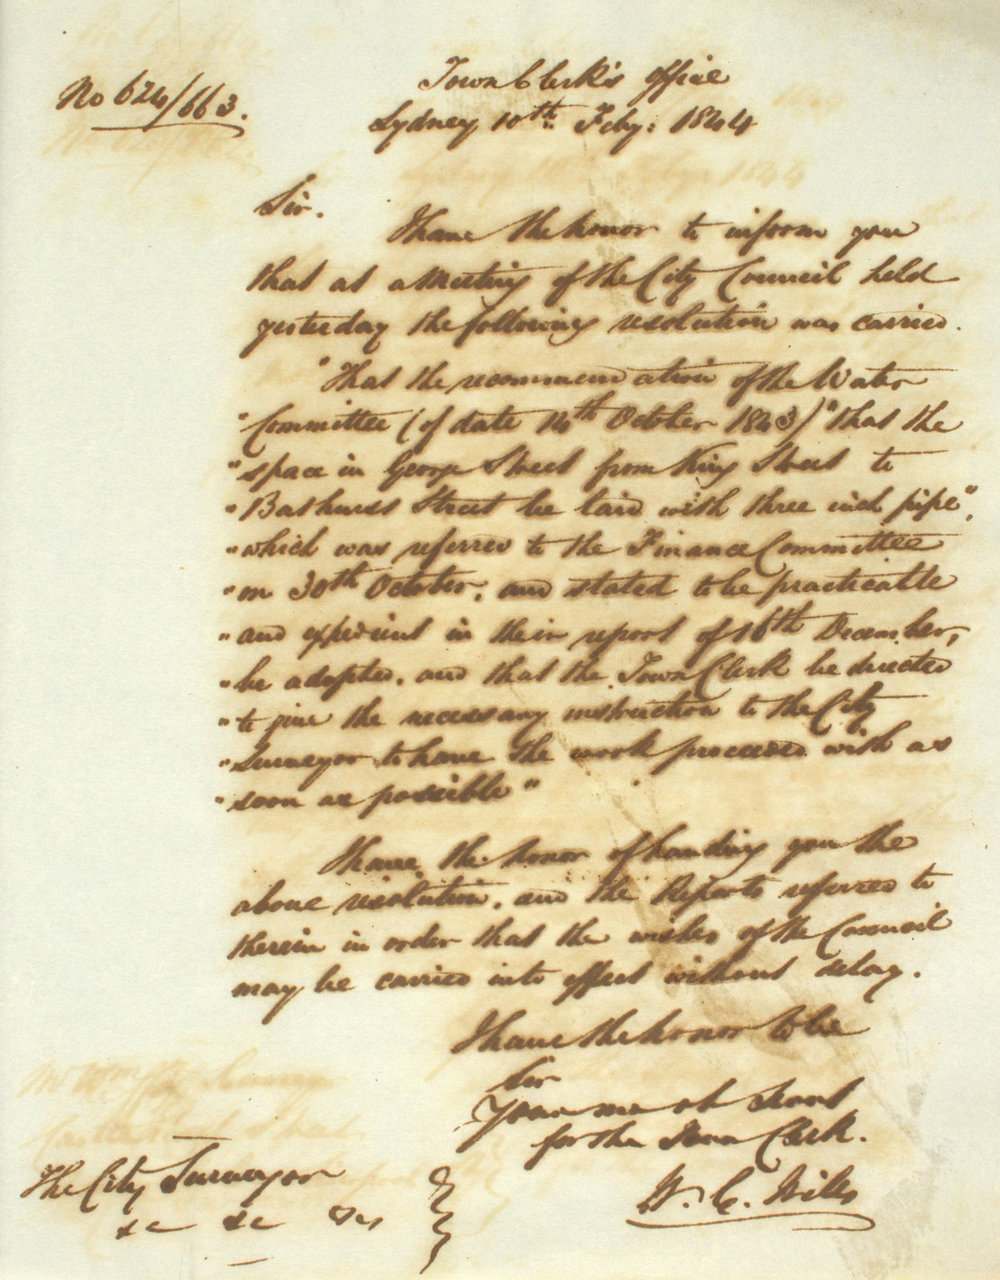 No 624/663.
Town Clerk's office
Sydney 10th Feby: 1844
Sir.
I have the honor to inform you
that at a Meeting of the City Council held
yesterday the following resolution was carried.
"That the recommendation of the Water
"Committee (of date 14th October 1843) "that the
"space in George Street from King Street to
"Bathurst Street be laid with three inch pipe",
"which was referred to the Finance Committee
"on 30th October, and stated to be practicable
"and expedient in their report of 16th December,
"be adopted, and that the Town Clerk be directed
"to give the necessary instruction to the City
"Surveyor to have the work proceeded with as
"soon as possible"
I have the honor of handing you the
above resolution, and the Reports referred to
therein in order that the wishes of the Council
may be carried into effect without delay.
I have the honor to be
Sir
Your mo ob Servt
for the Town Clerk.
W. C. Wills
The City Surveyor
&c &c &c